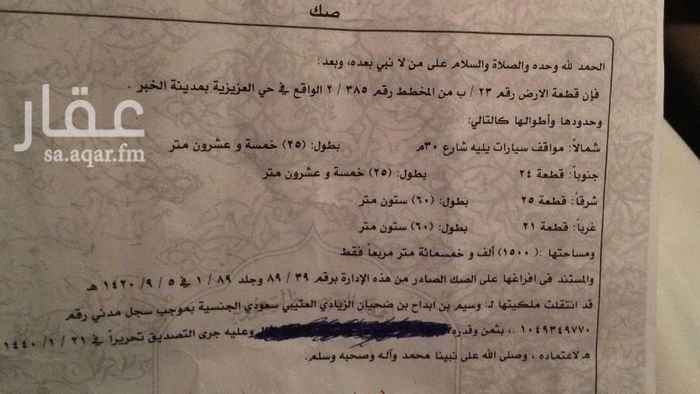 صك
الحمد لله وحده والصلاة والسلام على من لا نبي بعده، وبعد:
فإن قطعة الارض رقم ٢٣ / ب من المخطط رقم ٣٨٥ / ٢ الواقع في حي العزيزية بمدينة الخبر .
وحدودها وأطوالها كالتالي:
شمالاً: مواقف سيارات يليه شارع ٣٠م بطول: (٢٥) خمسة و عشرون متر
جنوباً: قطعة ٢٤ بطول: (٢٥) خمسة و عشرون متر
شرقاً: قطعة ٢٥ بطول: (٦٠) ستون متر
غرباً: قطعة ٢١ بطول: (٦٠) ستون متر
ومساحتها :( ١٥٠٠) ألف و خمسمائة متر مربعاً فقط
والمستند في افراغها على الصك الصادر من هذه الإدارة برقم ٣٩ / ٨٩ وجلد ٨٩ / ١ في ٥ / ٩ / ١٤٢٠ هـ
قد انتقلت ملكيتها لـ: وسيم بن ابداح بن ضحيان الزيادي العتيبي سعودي الجنسية بموجب سجل مدني رقم
١٠٤٩٣٤٩٧٧٠ ،، بثمن وقدره وعليه جرى التصديق تحريراً في ٢١ / ١ / ١٤٤٠
هـ لاعتماده ، وصلى الله على نبينا محمد وآله وصحبه وسلم.
عقار
sa.aqar.fm